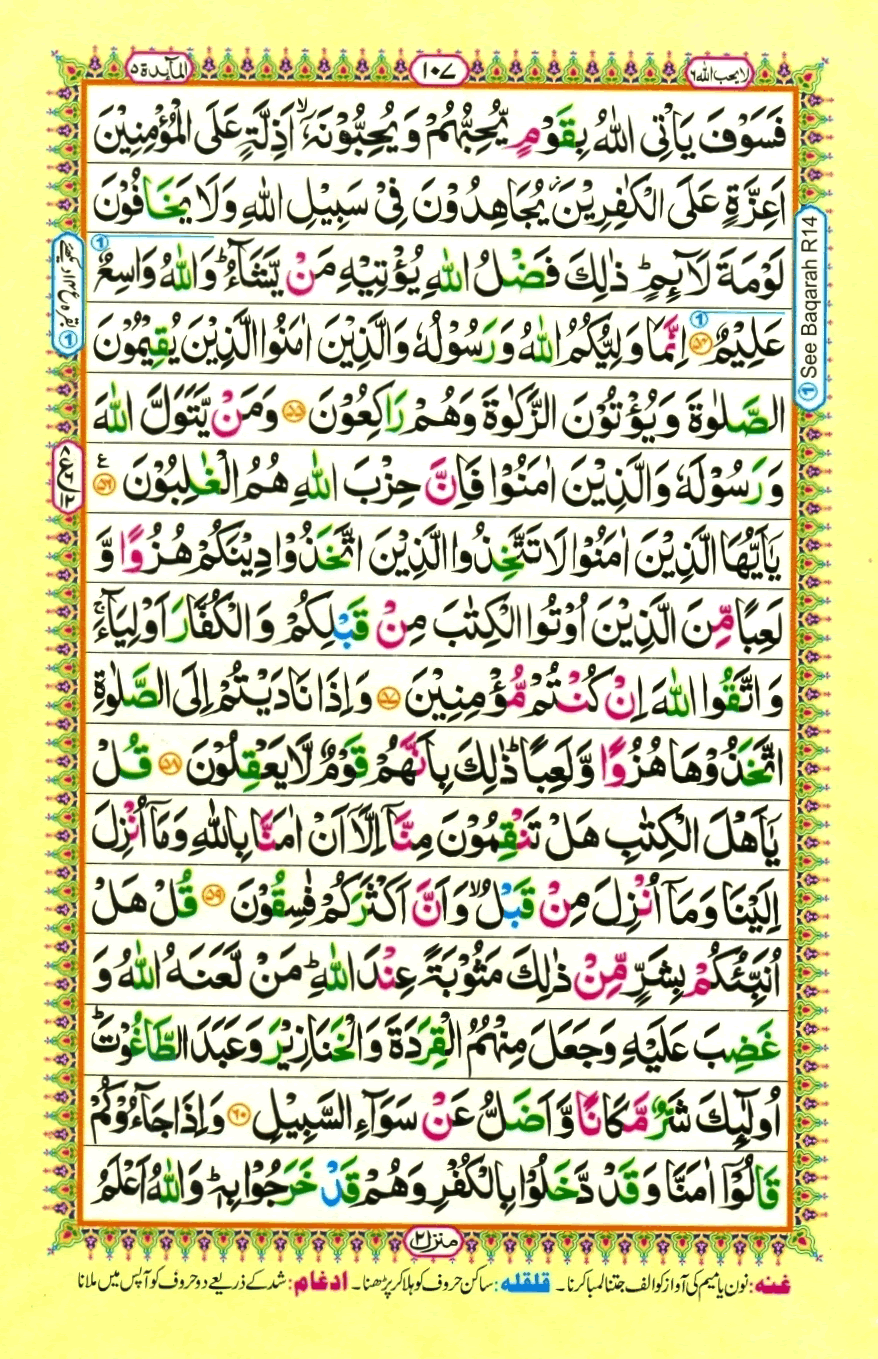 لا یحب اللہ ۶
۱۰۷
المآىِٕدۃ ۵
فَسَوْفَ یَاْتِی اللّٰهُ بِقَوْمٍ یُّحِبُّهُمْ وَ یُحِبُّوْنَهٗۤۙ اَذِلَّةٍ عَلَى الْمُؤْمِنِیْنَ
اَعِزَّةٍ عَلَى الْكٰفِرِیْنَ٘ یُجَاهِدُوْنَ فِیْ سَبِیْلِ اللّٰهِ وَ لَا یَخَافُوْنَ
لَوْمَةَ لَآىِٕمٍؕ ذٰلِكَ فَضْلُ اللّٰهِ یُؤْتِیْهِ مَنْ یَّشَآءُؕ وَ اللّٰهُ وَاسِعٌ
عَلِیْمٌ ۝۵۴ اِنَّمَا وَلِیُّكُمُ اللّٰهُ وَ رَسُوْلُهٗ وَ الَّذِیْنَ اٰمَنُوا الَّذِیْنَ یُقِیْمُوْنَ
الصَّلٰوةَ وَ یُؤْتُوْنَ الزَّكٰوةَ وَ هُمْ رٰكِعُوْنَ ۝۵۵ وَ مَنْ یَّتَوَلَّ اللّٰهَ
وَ رَسُوْلَهٗ وَ الَّذِیْنَ اٰمَنُوْا فَاِنَّ حِزْبَ اللّٰهِ هُمُ الْغٰلِبُوْنَ ۝۵۶ ع
یٰۤاَیُّهَا الَّذِیْنَ اٰمَنُوْا لَا تَتَّخِذُوا الَّذِیْنَ اتَّخَذُوْا دِیْنَكُمْ هُزُوًا وَّ
لَعِبًا مِّنَ الَّذِیْنَ اُوْتُوا الْكِتٰبَ مِنْ قَبْلِكُمْ وَ الْكُفَّارَ اَوْلِیَآءَۚ
وَ اتَّقُوا اللّٰهَ اِنْ كُنْتُمْ مُّؤْمِنِیْنَ ۝۵۷ وَ اِذَا نَادَیْتُمْ اِلَى الصَّلٰوةِ
اتَّخَذُوْهَا هُزُوًا وَّ لَعِبًاؕ ذٰلِكَ بِاَنَّهُمْ قَوْمٌ لَّا یَعْقِلُوْنَ ۝۵۸ قُلْ
یٰۤاَهْلَ الْكِتٰبِ هَلْ تَنْقِمُوْنَ مِنَّاۤ اِلَّاۤ اَنْ اٰمَنَّا بِاللّٰهِ وَ مَاۤ اُنْزِلَ
اِلَیْنَا وَ مَاۤ اُنْزِلَ مِنْ قَبْلُۙ وَ اَنَّ اَكْثَرَكُمْ فٰسِقُوْنَ ۝۵۹ قُلْ هَلْ
اُنَبِّئُكُمْ بِشَرٍّ مِّنْ ذٰلِكَ مَثُوْبَةً عِنْدَ اللّٰهِؕ مَنْ لَّعَنَهُ اللّٰهُ وَ
غَضِبَ عَلَیْهِ وَ جَعَلَ مِنْهُمُ الْقِرَدَةَ وَ الْخَنَازِیْرَ وَ عَبَدَ الطَّاغُوْتَؕ
اُولٰٓىِٕكَ شَرٌّ مَّكَانًا وَّ اَضَلُّ عَنْ سَوَآءِ السَّبِیْلِ ۝۶۰ وَ اِذَا جَآءُوْكُمْ
قَالُوْۤا اٰمَنَّا وَ قَدْ دَّخَلُوْا بِالْكُفْرِ وَ هُمْ قَدْ خَرَجُوْا بِهٖؕ وَ اللّٰهُ اَعْلَمُ
1 See Baqarah R14
منزل ۲
غنه: نون یا میم کی آواز کو الف جتنا لمبا کرنا۔ قلقله: ساکن حروف کو ہلا کر پڑھنا۔ ادغام: شد کے ذریعے دو حروف کو آپس میں ملانا